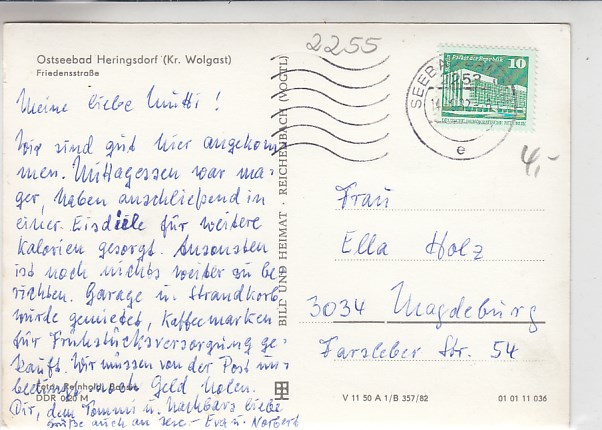 2255
Ostseebad Heringsdorf (Kr. Wolgast)
Friedensstraße
Meine liebe Mutti!
Wir sind gut hier angekom-
men. Mittagessen war ma-
ger, haben anschließend in
einer Eisdiele für weitere
Kalorien gesorgt. Ansonsten
ist noch nichts weiter zu be-
richten. Garage u. Strandkorb
wurde gemietet, Kaffeemarken
für Frühstücksversorgung ge-
kauft. Wir müssen von der Post un-
bedingt noch Geld holen.
Foto: Reinhold,
DDR 0,20 M
Dir, dem Tommi u. Nachbars liebe
Grüße auch an Eva u. Norbert
BILD UND HEIMAT · REICHENBACH (VOGTL)
Palast der Republik
10
SEEBAD
2253
e
4,-
Frau
Ella Holz
3034 Magdeburg
Farsleber Str. 54
V 11 50 A 1/B 357/82
01 01 11 036